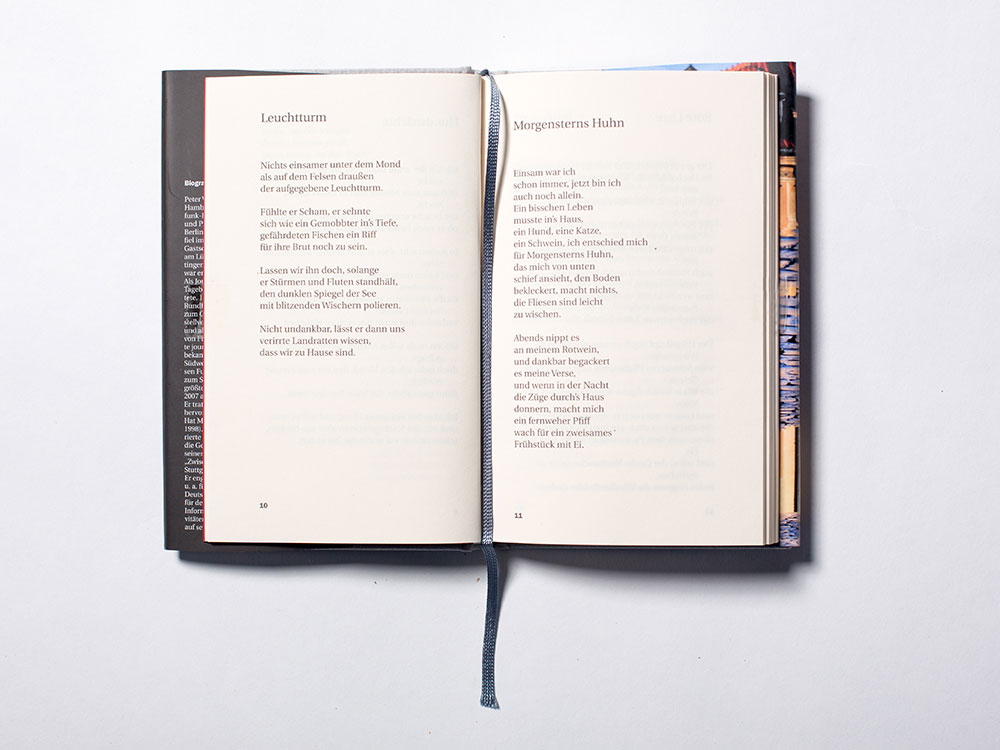 Leuchtturm
Nichts einsamer unter dem Mond
als auf dem Felsen draußen
der aufgegebene Leuchtturm.
Fühlte er Scham, er sehnte
sich wie ein Gemobbter in's Tiefe,
gefährdeten Fischen ein Riff
für ihre Brut noch zu sein.
Lassen wir ihn doch, solange
er Stürmen und Fluten standhält,
den dunklen Spiegel der See
mit blitzenden Wischern polieren.
Nicht undankbar, lässt er dann uns
verirrte Landratten wissen,
dass wir zu Hause sind.
10
Morgensterns Huhn
Einsam war ich
schon immer, jetzt bin ich
auch noch allein.
Ein bisschen Leben
musste in's Haus,
ein Hund, eine Katze,
ein Schwein, ich entschied mich
für Morgensterns Huhn,
das mich von unten
schief ansieht, den Boden
bekleckert, macht nichts,
die Fliesen sind leicht
zu wischen.
Abends nippt es
an meinem Rotwein,
und dankbar begackert
es meine Verse,
und wenn in der Nacht
die Züge durch's Haus
donnern, macht mich
ein fernweher Pfiff
wach für ein zweisames
Frühstück mit Ei.
11
Biogra
Peter
Hamb
funk-
und P
Berlin
fiel im
Gasts
am Lü
tinger
war er
Als Jo
Tageb
tete,
Rundf
zum
stellv
und al
von F
te jour
bekan
Südwe
sen Fu
zum S
größte
2007 a
Er trat
hervo
Hat M
1998),
rierte
die Ge
seiner
„Zwis
Stuttg
Er eng
u. a. f
Deuts
für de
Inform
vitäten
auf se